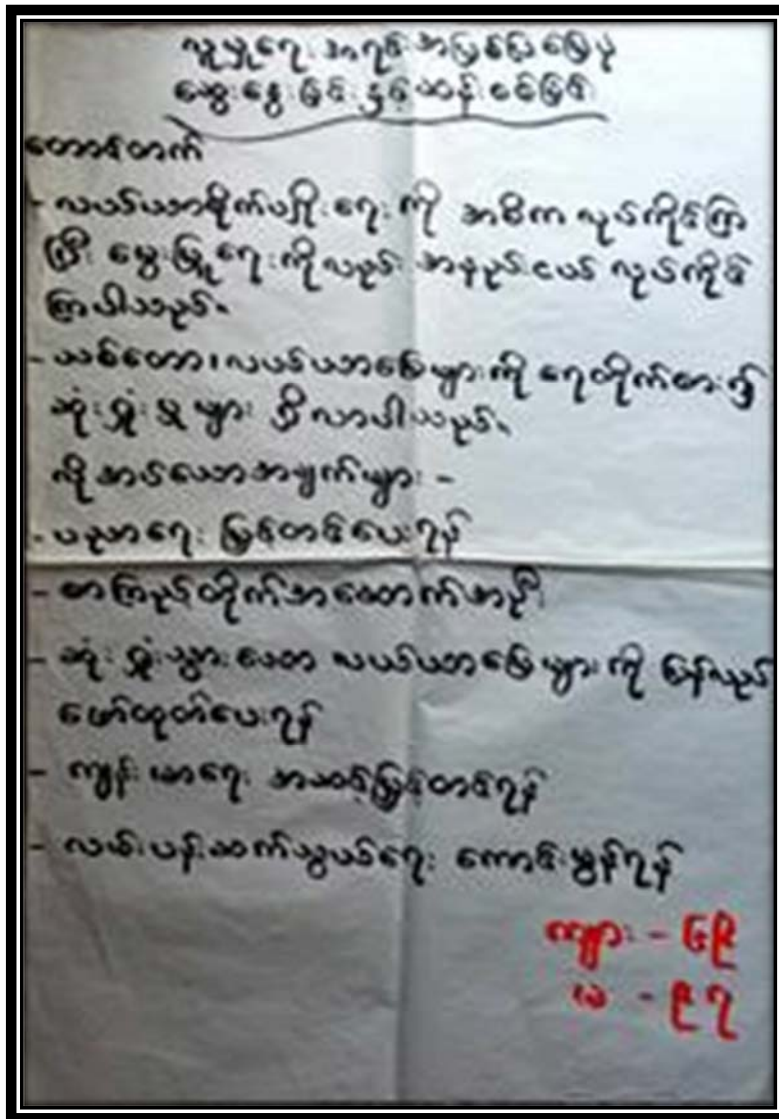 လူမှုရေး အရင်းအမြစ်ပြမြေပုံ
ဆွေးနွေးခြင်းနှင့်ဆန်းစစ်ခြင်း
တောင်တက်
- လယ်ယာစိုက်ပျိုးရေးကို အဓိက လုပ်ကိုင်ကြ
ပြီး မွေးမြူရေးကိုလည်း အနည်းငယ် လုပ်ကိုင်
ကြပါသည်။
- သစ်တော၊ လယ်ယာမြေများကို ရေတိုက်စား၍
ဆုံးရှုံးမှုများ ရှိလာပါသည်။
လိုအပ်သောအချက်များ -
- ပညာရေး မြှင့်တင်ပေးရန်
- စာကြည့်တိုက်အဆောက်အဦး
- ဆုံးရှုံးသွားသော လယ်ယာမြေများကို ပြန်လည်
ဖော်ထုတ်ပေးရန်
- ကျန်းမာရေး အဆင့်မြှင့်တင်ရန်
- လမ်းပန်းဆက်သွယ်ရေး ကောင်းမွန်ရန်
ကျား - ၆၉
မ - ၉၇